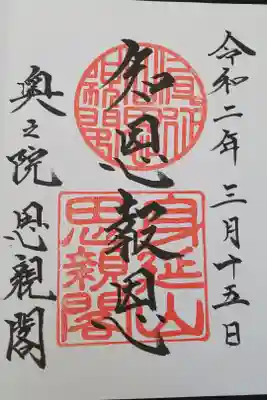 令和二年三月十五日
知恩報恩
身延山
思親閣
奥之院 思親閣